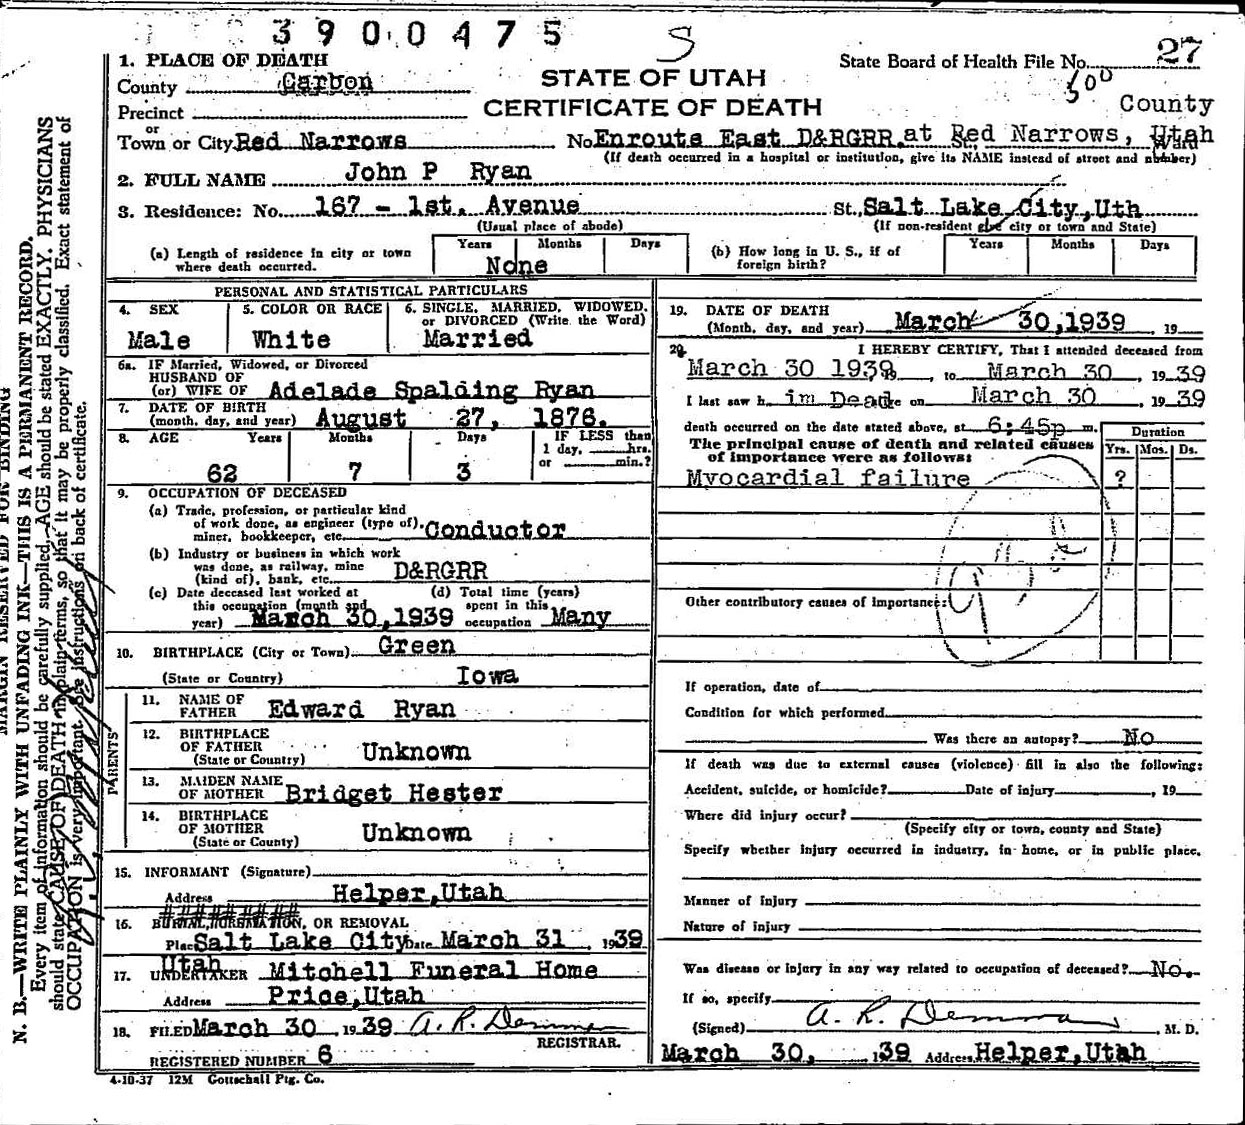 3900475
S
27
1. PLACE OF DEATH
State Board of Health File No.
500
County Carbon
STATE OF UTAH
County
Precinct
CERTIFICATE OF DEATH
or
Town or City Red Narrows No. Enroute East D&RGRR. at Red Narrows, Utah
(If death occurred in a hospital or institution, give its NAME instead of street and number)
2. FULL NAME John P Ryan
3. Residence: No. 167 - 1st. Avenue St., Salt Lake City, Uth
(Usual place of abode) (If non-resident give city or town and State)
(a) Length of residence in city or town where death occurred. Years Months Days
None
(b) How long in U. S., if of foreign birth? Years Months Days
PERSONAL AND STATISTICAL PARTICULARS
4. SEX 5. COLOR OR RACE 6. SINGLE, MARRIED, WIDOWED, or DIVORCED (Write the Word)
Male White Married
6a. IF Married, Widowed, or Divorced
HUSBAND OF
(or) WIFE OF Adelade Spalding Ryan
7. DATE OF BIRTH
(month, day, and year) August 27, 1876.
8. AGE Years Months Days IF LESS than 1 day, hrs. or min.?
62 7 3
9. OCCUPATION OF DECEASED
(a) Trade, profession, or particular kind
of work done, as engineer (type of).
miner, bookkeeper, etc. Conductor
(b) Industry or business in which work
was done, as railway, mine
(kind of), bank, etc. D&RGRR
(c) Date deceased last worked at
this occupation (month and
year) March 30,1939
(d) Total time (years)
spent in this
occupation Many
10. BIRTHPLACE (City or Town) Green
(State or Country) Iowa
PARENTS
11. NAME OF
FATHER Edward Ryan
12. BIRTHPLACE
OF FATHER
(State or Country) Unknown
13. MAIDEN NAME
OF MOTHER Bridget Hester
14. BIRTHPLACE
OF MOTHER
(State or Country) Unknown
15. INFORMANT (Signature)
Address Helper,Utah
16. BURIAL, CREMATION, OR REMOVAL
Place Salt Lake City Date March 31 , 1939
Utah
17. UNDERTAKER Mitchell Funeral Home
Address Price,Utah
18. FILED March 30 , 1939 A. R. Demman
REGISTRAR.
REGISTERED NUMBER 6
4-10-37 12M Gottschall Ptg. Co.
19. DATE OF DEATH
(Month, day, and year) March 30,1939 , 19
20. I HEREBY CERTIFY, That I attended deceased from
March 30 1939 , to March 30 , 1939
I last saw h im Dead e on March 30 , 1939
death occurred on the date stated above, at 6:45p m.
The principal cause of death and related causes
of importance were as follows:
Duration
Yrs. Mos. Ds.
Myocardial failure ?
Other contributory causes of importance:
If operation, date of
Condition for which performed
Was there an autopsy? No
If death was due to external causes (violence) fill in also the following:
Accident, suicide, or homicide? Date of injury , 19
Where did injury occur?
(Specify city or town, county and State)
Specify whether injury occurred in industry, in home, or in public place.
Manner of injury
Nature of injury
Was disease or injury in any way related to occupation of deceased? No.
If so, specify
(Signed) A. R. Demman , M. D.
March 30, 1939 Address Helper,Utah
MARGIN RESERVED FOR BINDING
N. B.—WRITE PLAINLY WITH UNFADING INK—THIS IS A PERMANENT RECORD.
Every item of information should be carefully supplied. AGE should be stated EXACTLY. PHYSICIANS
should state CAUSE OF DEATH in plain terms, so that it may be properly classified. Exact statement of
OCCUPATION is very important. See instructions on back of certificate.